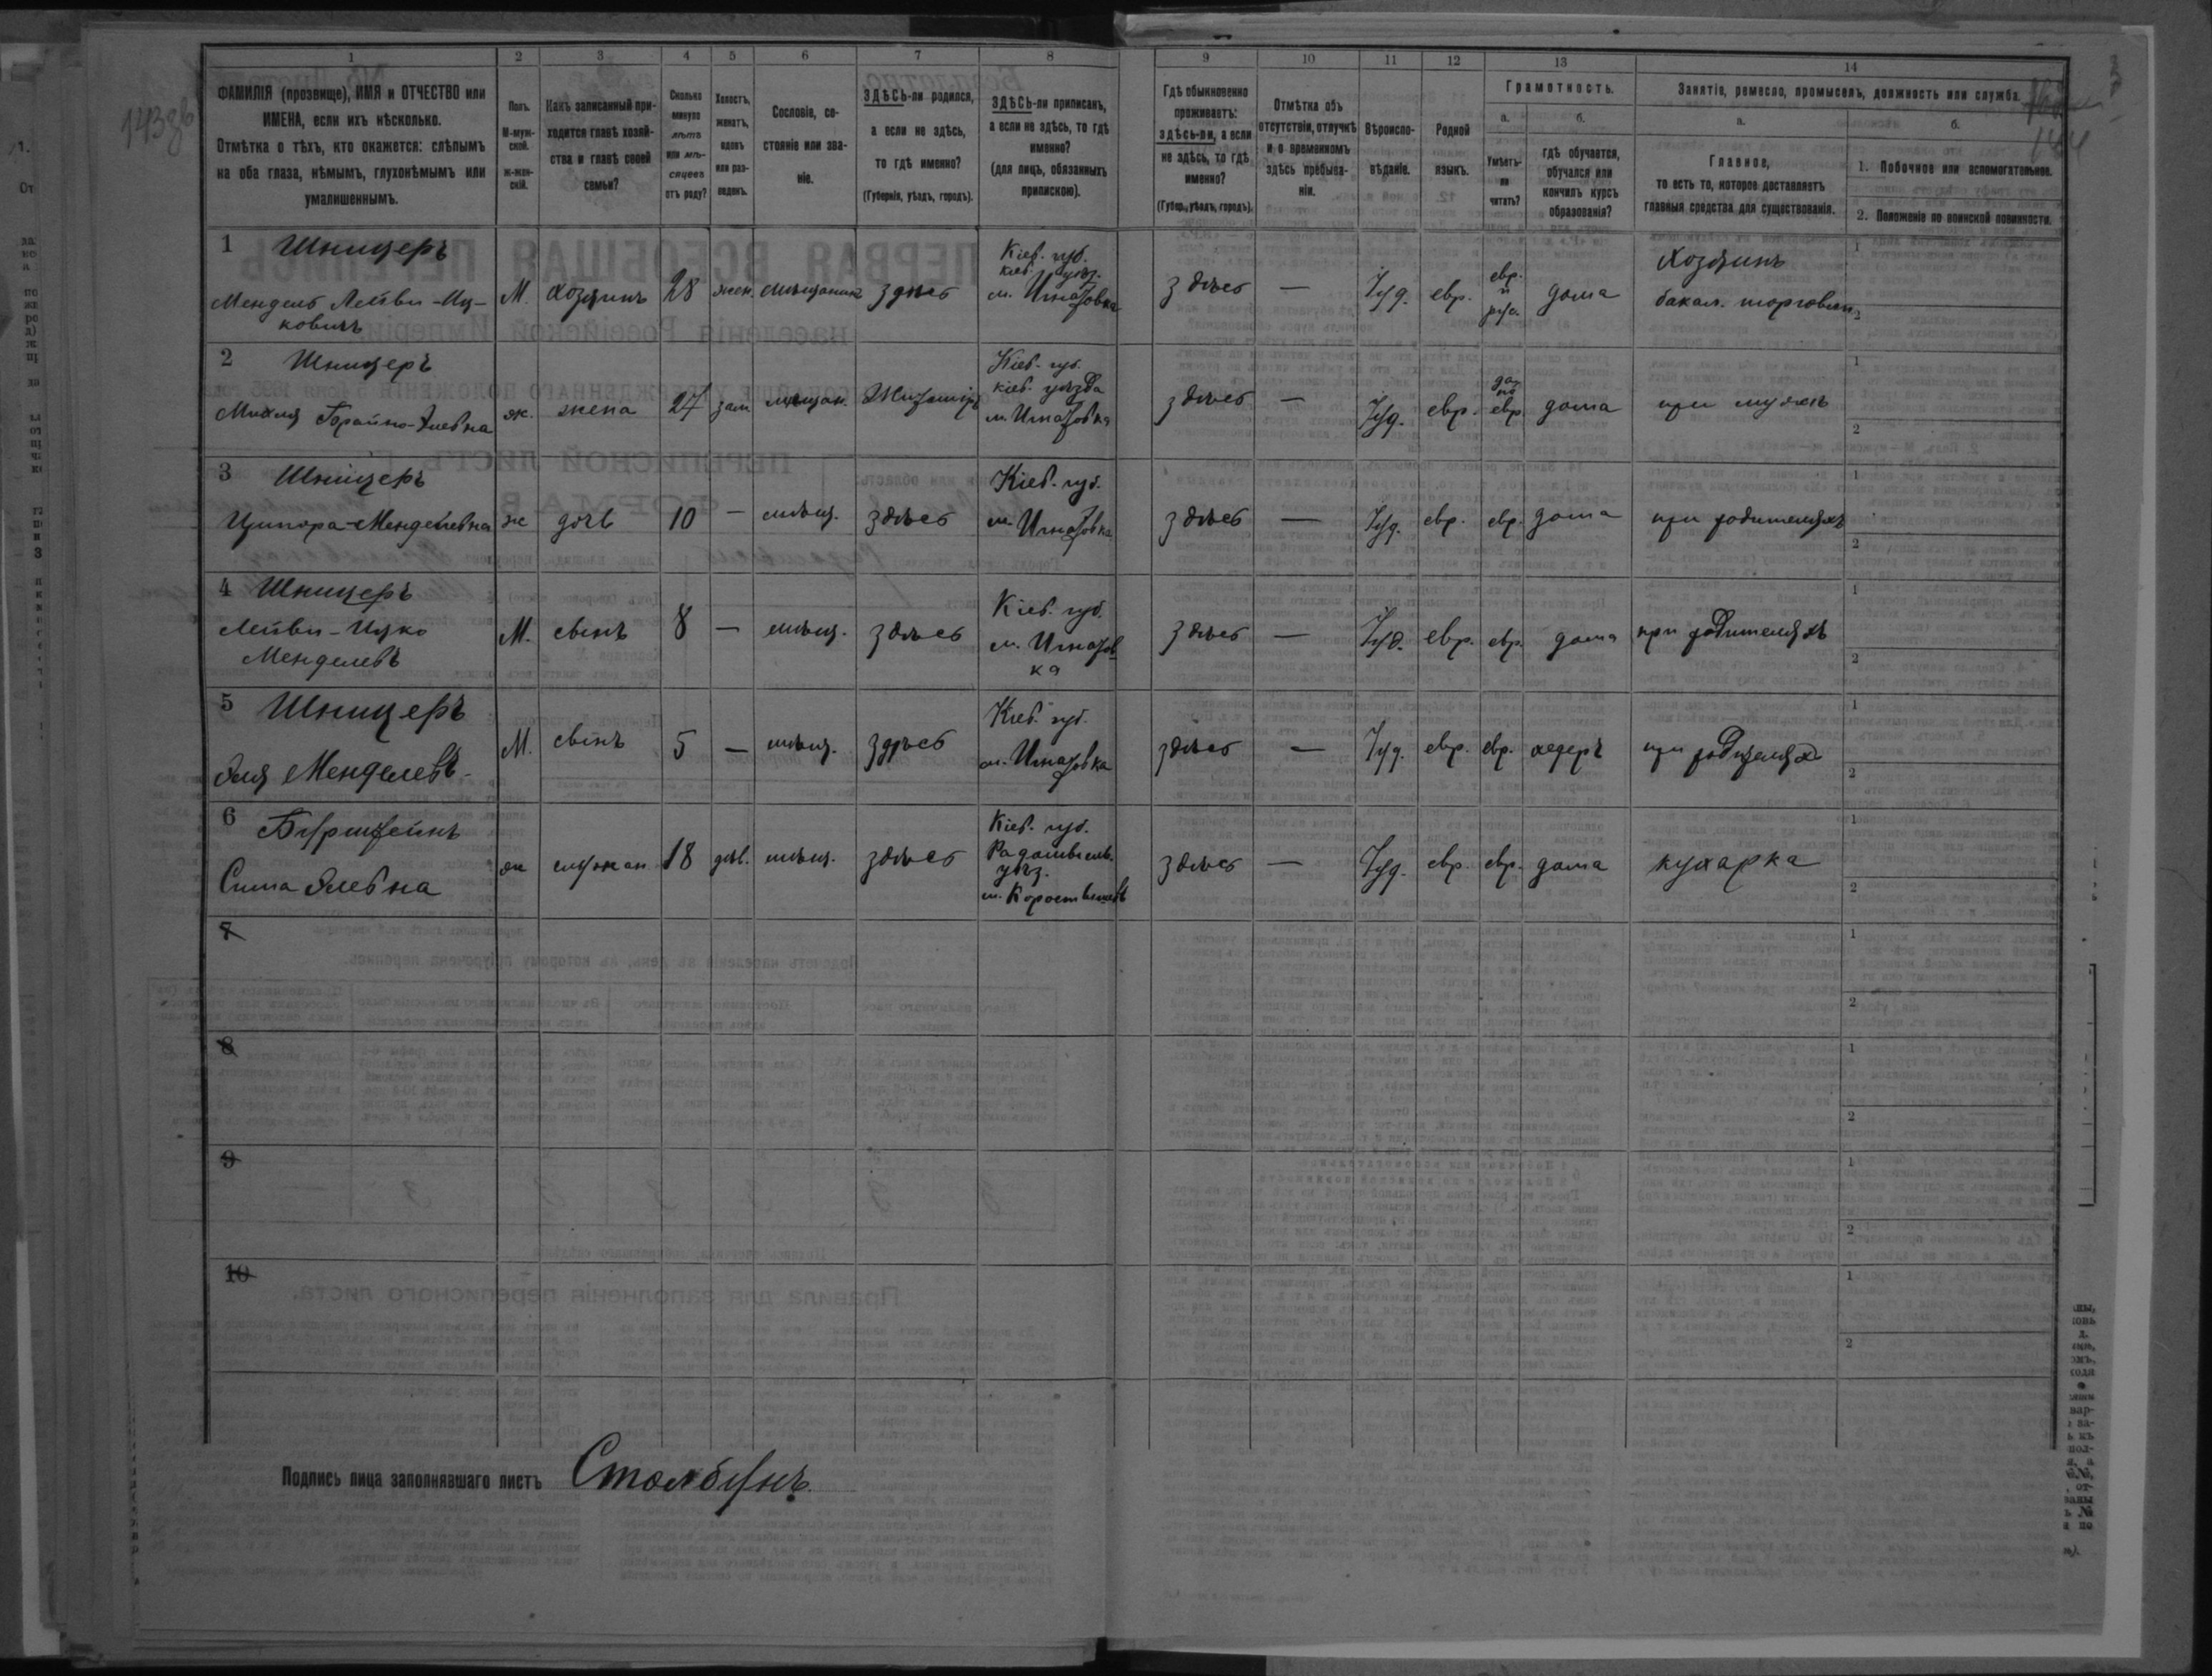 143 об
144
1 2 3 4 5 6 7 8 9 10 11 12 13 14
ФАМИЛІЯ (прозвище), ИМЯ и ОТЧЕСТВО или
ИМЕНА, если ихъ нѣсколько.
Отмѣтка о тѣхъ, кто окажется: слѣпымъ
на оба глаза, нѣмымъ, глухонѣмымъ или
умалишеннымъ.
Полъ.
М-муж-
ской.
Ж-жен-
скій.
Какъ записанный при-
ходится главѣ хозяй-
ства и главѣ своей
семьи?
Сколько
минуло
лѣтъ
или мѣ-
сяцевъ
отъ роду?
Холостъ,
женатъ,
вдовъ
или раз-
веденъ.
Сословіе, со-
стояніе или зва-
ніе.
ЗДѢСЬ-ли родился,
а если не здѣсь,
то гдѣ именно?
(Губернія, уѣздъ, городъ).
ЗДѢСЬ-ли приписанъ,
а если не здѣсь, то гдѣ
именно?
(для лицъ, обязанныхъ
припискою).
Гдѣ обыкновенно
проживаетъ:
здѣсь-ли, а если
не здѣсь, то гдѣ
именно?
(Губер., уѣздъ, городъ).
Отмѣтка объ
отсутствіи, отлучкѣ
и о временномъ
здѣсь пребыва-
ніи.
Вѣроиспо-
вѣданіе.
Родной
языкъ.
Грамотность.
а.
Умѣетъ-
ли
читать?
б.
гдѣ обучается,
обучался или
кончилъ курсъ
образованія?
Занятіе, ремесло, промыселъ, должность или служба.
а.
Главное,
то есть то, которое доставляетъ
главныя средства для существованія.
б.
1. Побочное или вспомогательное.
2. Положеніе по воинской повинности.
1 Шницеръ
Мендель Лейви-Иц-
ковичъ
М. хозяинъ 28 жен. мѣщанинъ здѣсь
Кіев. губ.
кіев. уѣз.
м. Игнатовка
здѣсь — Іуд. евр.
евр.
и
рус.
дома
Хозяинъ
бакал. торговли
1
2
2 Шницеръ
Михля Брайно-Элевна
ж. жена 27 зам мѣщан. Житомір
Кіев. губ.
кіев. уѣзда
м. Игнатовка
здѣсь — Іуд. евр.
евр.
дома при мужѣ
1
2
3 Шницеръ
Ципора-Менделевна
ж дочь 10 — мѣщ. здѣсь
Кіев. губ.
м. Игнатовка
здѣсь — Іуд. евр. евр. дома при родителяхъ
1
2
4 Шницеръ
Лейви-Ицко
Менделевъ
М. сынъ 8 — мѣщ. здѣсь
Кіев. губ.
м. Игнатов
ка
здѣсь — Іуд. евр. евр. дома при родителяхъ
1
2
5 Шницеръ
Эля Менделевъ
М. сынъ 5 — мѣщ. здѣсь
Кіев. губ.
м. Игнатовка
здѣсь — Іуд. евр. евр. хедеръ при родителях
1
2
6 Бурштейнъ
Сима Элевна
ж служан 18 дѣв. мѣщ. здѣсь
Кіев. губ.
Радомысль.
уѣз.
м. Коростышевъ
здѣсь — Іуд. евр. евр. дома кухарка
1
2
7
1
2
8
1
2
9
1
2
10
1
2
Подпись лица заполнявшаго листъ Столбунъ.